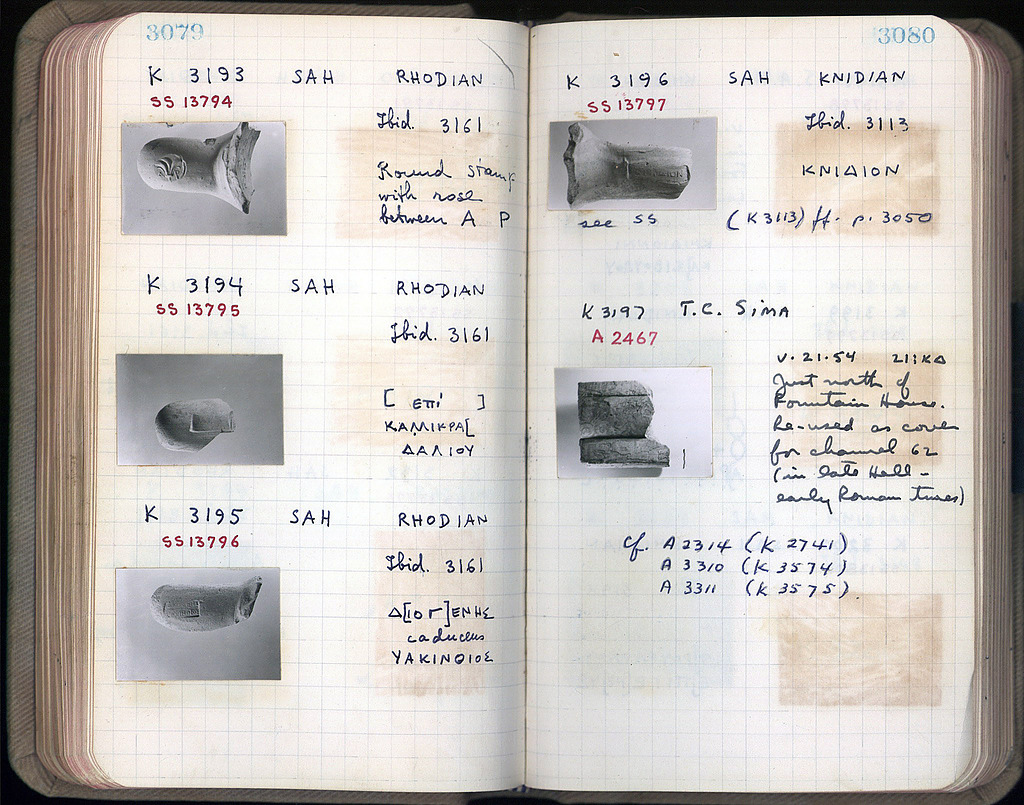 3079
K 3193 SAH RHODIAN
SS 13794
Ibid. 3161
Round stamp
with rose
between A P
K 3194 SAH RHODIAN
SS 13795
Ibid. 3161
[ ΕΠΙ ]
ΚΑΛΛΙΚΡΑ[
ΔΑΛΙΟΥ
K 3195 SAH RHODIAN
SS 13796
Ibid. 3161
Δ[ΙΟΓ]ΕΝΗΣ
caduceus
ΥΑΚΙΝΘΙΟΣ
3080
K 3196 SAH KNIDIAN
SS 13797
Ibid. 3113
ΚΝΙΔΙΟΝ
see SS (K 3113) ff. p. 3050
K 3197 T.C. SIMA
A 2467
V. 21. 54 21:ΚΔ
Just north of
Fountain House.
Re-used as cover
for channel 62
(in late Hell-
early Roman times)
cf. A 2314 (K 2741)
A 3310 (K 3574)
A 3311 (K 3575).